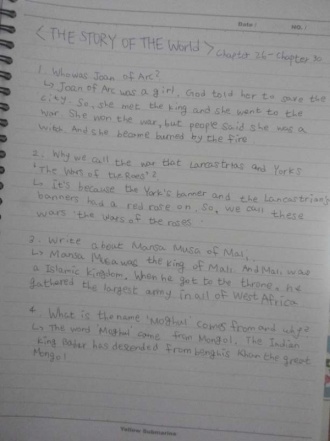 Date : NO. :
< THE STORY OF THE World > Chapter 26 - Chapter 30
1. Who was Joan of Arc?
↳ Joan of Arc was a girl, God told her to save the
city. So, she met the king and she went to the
war. She won the war, but people said she was a
witch. And she became burned by the fire
2. Why we call the war that Lancastrias and Yorks
'The Wars of the Roses'?
↳ It's because the York's banner and the Lancastrian's
banners had a red rose on. So, we call these
wars 'the wars of the roses.
3. Write about Mansa Musa of Mali.
↳ Mansa Musa was the king of Mali. And Mali was
a Islamic kingdom. When he got to be the throne, he
gathered the largest army in all of West Africa
4. What is the name 'Moghal' comes from and why?
↳ The word Moghal coms from Mongol. The Indian
king Babar has descended from Genghis Khan the great
Mongol
Yellow Submarine